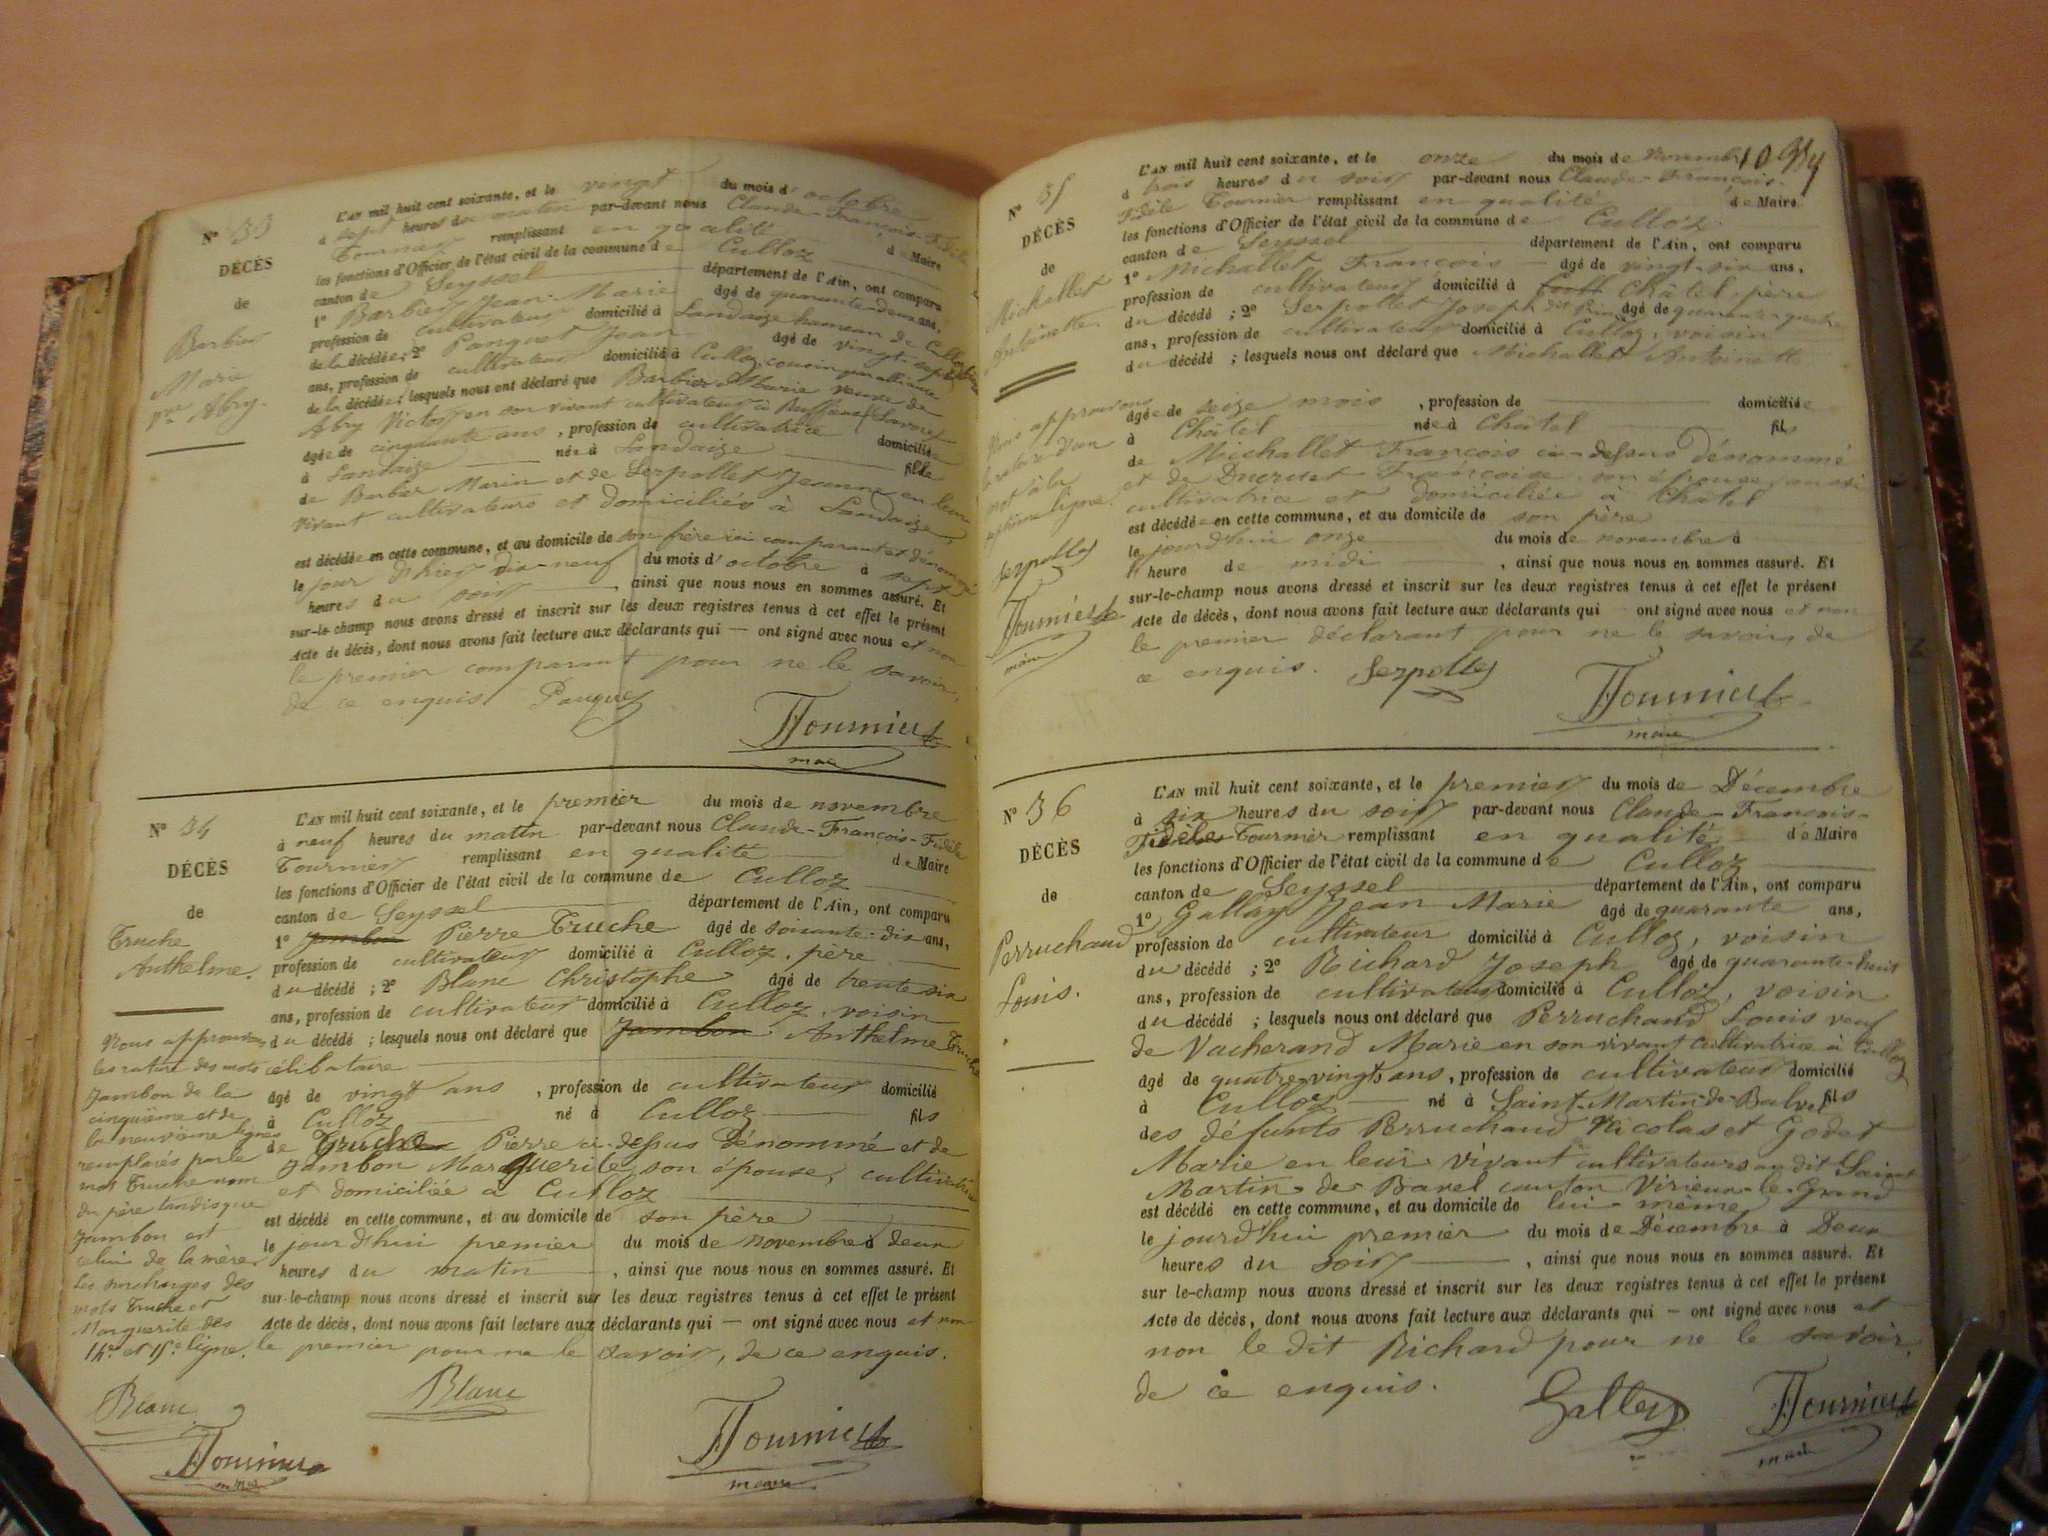 N° 33
DÉCÈS
de
Barbier
Marie
ve Abry.
L'AN mil huit cent soixante, et le vingt du mois d'octobre
à sept heures du matin par-devant nous Claude-François-Fidèle
Tournier remplissant en qualité de Maire
les fonctions d'Officier de l'état civil de la commune de Culloz
canton de Seyssel département de l'Ain, ont comparu
1° Barbier Jean-Marie âgé de quarante-deux ans,
profession de cultivateur domicilié à Landaize hameau de Culloz frère
de la décédée; 2° Pauquet Jean âgé de vingt-sept
ans, profession de cultivateur domicilié à Culloz, cousin par alliance
de la décédée; lesquels nous ont déclaré que Barbier Marie veuve de
Abry Victor en son vivant cultivateur à Ruffieux (Savoie)
âgée de cinquante ans, profession de cultivatrice domiciliée
à Landaize née à Landaize fille
de Barbier Marin et de Serpollet Jeanne en leur
vivant cultivateurs et domiciliés à Landaize,
est décédée en cette commune, et au domicile de son frère ici comparant et dénommé
le jour d'hier dix-neuf du mois d'octobre à sept
heures du soir ainsi que nous nous en sommes assuré. Et
sur-le-champ nous avons dressé et inscrit sur les deux registres tenus à cet effet le présent
Acte de décès, dont nous avons fait lecture aux déclarants qui — ont signé avec nous et non
le premier comparant pour ne le savoir,
de ce enquis. Pauquet
Tournier
maire
N° 34
DÉCÈS
de
Truche
Anthelme.
Nous approuvons
les rature des mots
Jambon de la
cinquième et de
la neuvième lignes
remplacés par le
mot Truche nom
du père tandisque
Jambon est
celui de la mère
Les surcharges des
mots Truche et
Marguerite des
14e et 15e ligne.
Blanc
Tournier
maire
L'AN mil huit cent soixante, et le premier du mois de novembre
à neuf heures du matin par-devant nous Claude-François-Fidèle
Tournier remplissant en qualité de Maire
les fonctions d'Officier de l'état civil de la commune de Culloz
canton de Seyssel département de l'Ain, ont comparu
1° Jambon Pierre Truche âgé de soixante-dix ans,
profession de cultivateur domicilié à Culloz, père
du décédé ; 2° Blanc Christophe âgé de trente six
ans, profession de cultivateur domicilié à Culloz, voisin
du décédé ; lesquels nous ont déclaré que Jambon Anthelme Truche
célibataire
âgé de vingt ans, profession de cultivateur domicilié
à Culloz né à Culloz fils
de Truche Pierre ci-dessus dénommé et de
Jambon Marguerite, son épouse, cultivatrice
et domiciliée à Culloz
est décédé en cette commune, et au domicile de son père
le jourd'hui premier du mois de novembre à deux
heures du matin, ainsi que nous nous en sommes assuré. Et
sur-le-champ nous avons dressé et inscrit sur les deux registres tenus à cet effet le présent
Acte de décès, dont nous avons fait lecture aux déclarants qui — ont signé avec nous et non
le premier pour ne le savoir, de ce enquis.
Blanc
Tournier
maire
N° 35
DÉCÈS
de
Michallet
Antoinette
Nous approuvons
la rature d'un
mot à la
septième ligne.
Serpollet
Tournier
maire
L'AN mil huit cent soixante, et le onze du mois de novembre
à trois heures du soir par-devant nous Claude-François-
Fidèle Tournier remplissant en qualité de Maire
les fonctions d'Officier de l'état civil de la commune de Culloz
canton de Seyssel département de l'Ain, ont comparu
1° Michallet François âgé de vingt-six ans,
profession de cultivateur domicilié à Châtel, père
du décédé ; 2° Serpollet Joseph dit âgé de quarante-quatre
ans, profession de cultivateur domicilié à Culloz, voisin
du décédé ; lesquels nous ont déclaré que Michallet Antoinette
âgée de seize mois, profession de domiciliée
à Châtel née à Châtel fils
de Michallet François ci-dessus dénommé
et de Ducruet Françoise, son épouse, aussi
cultivatrice et domiciliée à Châtel
est décédée en cette commune, et au domicile de son père
le jourd'hui onze du mois de novembre à
l'heure de midi, ainsi que nous nous en sommes assuré. Et
sur-le-champ nous avons dressé et inscrit sur les deux registres tenus à cet effet le présent
Acte de décès, dont nous avons fait lecture aux déclarants qui — ont signé avec nous et non
le premier déclarant pour ne le savoir, de
ce enquis. Serpollet
Tournier
maire
N° 36
DÉCÈS
de
Perruchaud
Louis.
L'AN mil huit cent soixante, et le premier du mois de Décembre
à six heures du soir par-devant nous Claude-François-
Fidèle Tournier remplissant en qualité de Maire
les fonctions d'Officier de l'état civil de la commune de Culloz
canton de Seyssel département de l'Ain, ont comparu
1° Gallay Jean Marie âgé de quarante ans,
profession de cultivateur domicilié à Culloz, voisin
du décédé ; 2° Richard Joseph âgé de quarante-huit
ans, profession de cultivateur domicilié à Culloz, voisin
du décédé ; lesquels nous ont déclaré que Perruchaud Louis veuf
de Vacherand Marie en son vivant cultivatrice à Culloz
âgé de quatre-vingts ans, profession de cultivateur domicilié
à Culloz né à Saint-Martin-de-Bavel fils
des défunts Perruchaud Nicolas et Godet
Marie en leur vivant cultivateurs au dit Saint
Martin-de-Bavel canton Virieux-le-Grand
est décédé en cette commune, et au domicile de lui-même
le jourd'hui premier du mois de Décembre à Deux
heures du soir, ainsi que nous nous en sommes assuré. Et
sur le-champ nous avons dressé et inscrit sur les deux registres tenus à cet effet le présent
Acte de décès, dont nous avons fait lecture aux déclarants qui — ont signé avec nous et
non le dit Richard pour ne le savoir,
de ce enquis.
Gallay
Tournier
maire